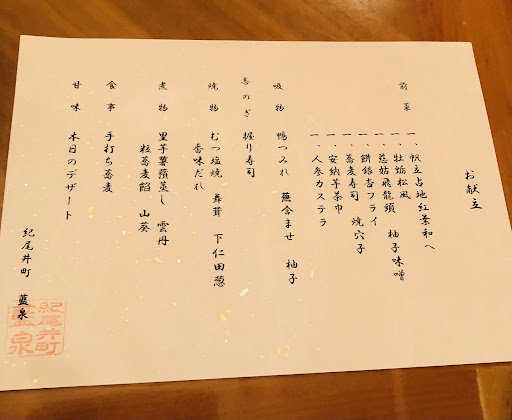 お献立
前菜
一、帆立占地紅葉和へ
一、牡蛎松風
一、慈姑飛龍頭 柚子味噌
一、餅銀杏フライ
一、蕎麦寿司 焼穴子
一、安納芋茶巾
一、人参カステラ
吸物 鴨つみれ 蕪含ませ 柚子
志のぎ 握り寿司
焼物 むつ塩焼 舞茸 下仁田葱
香味だれ
煮物 里芋薯蕷蒸し 雲丹
粒蕎麦餡 山葵
食事 手打ち蕎麦
甘味 本日のデザート
紀尾井町 藍泉
紀尾井町
藍泉